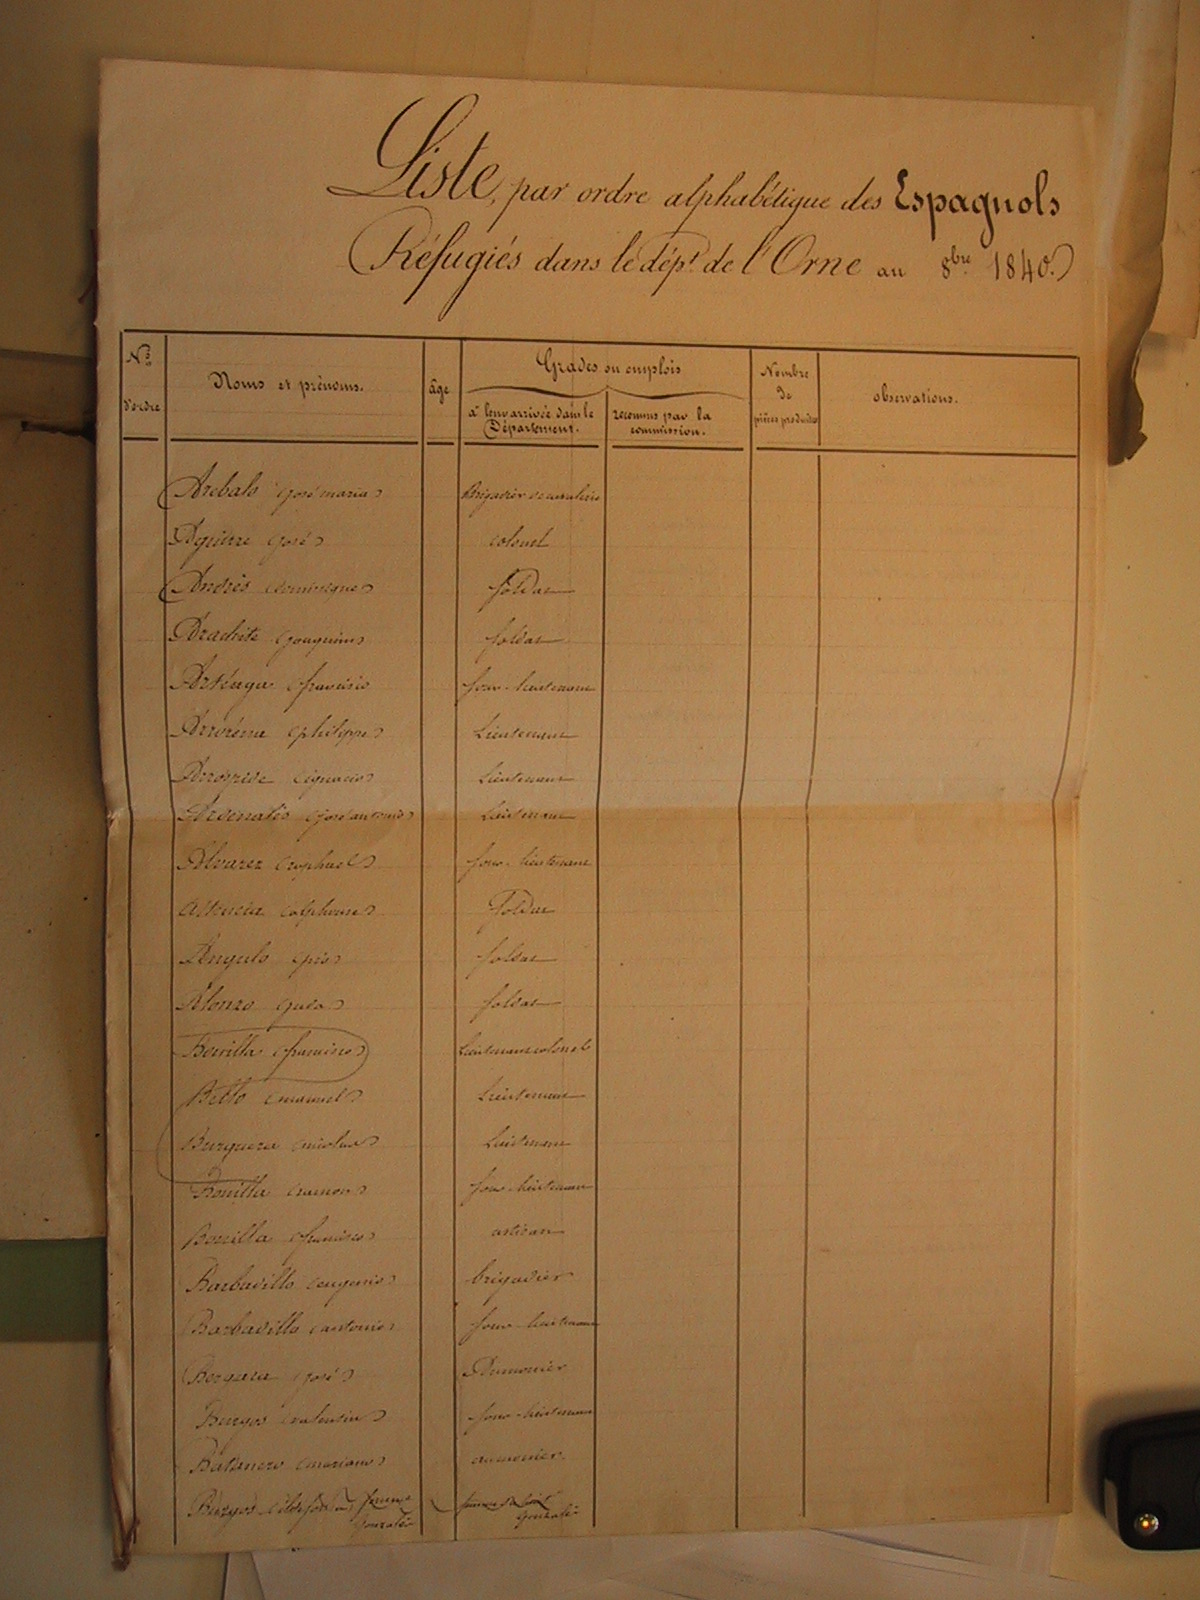 Liste, par ordre alphabétique des Espagnols
Réfugiés dans le dépt. de l'Orne au 8bre 1840.
Nos d'ordre
Noms et prénoms.
âge
Grades ou emplois
à leur arrivée dans le Département.
reconnus par la commission.
Nombre de pièces produites
observations.
Arebalo (josé maria) Brigadier de cavalerie
Aguirre (josé) colonel
Andrès (dominique) soldat
(joaquim) soldat
Arteaga (francisco sous-lieutenant
(philippe) Lieutenant
(ignacio) Lieutenant
(josé antonio) Lieutenant
Alvarez (raphael) sous-lieutenant
(alphonse) soldat
Angulo (pio) soldat
Alonzo soldat
(francisco) Lieutenant colonel
Bello (manuel) Lieutenant
Burguera (nicolas) Lieutenant
Bonilla (ramon) sous-lieutenant
Bonilla (francisco) artisan
Barbadillo (eugenio) brigadier
Barbadillo (antonio) sous-lieutenant
(josé) aumonier
Burgos (valentin) sous-lieutenant
Batanero (mariano) aumonier.
Burgos femme Gonzalès Gonzalès